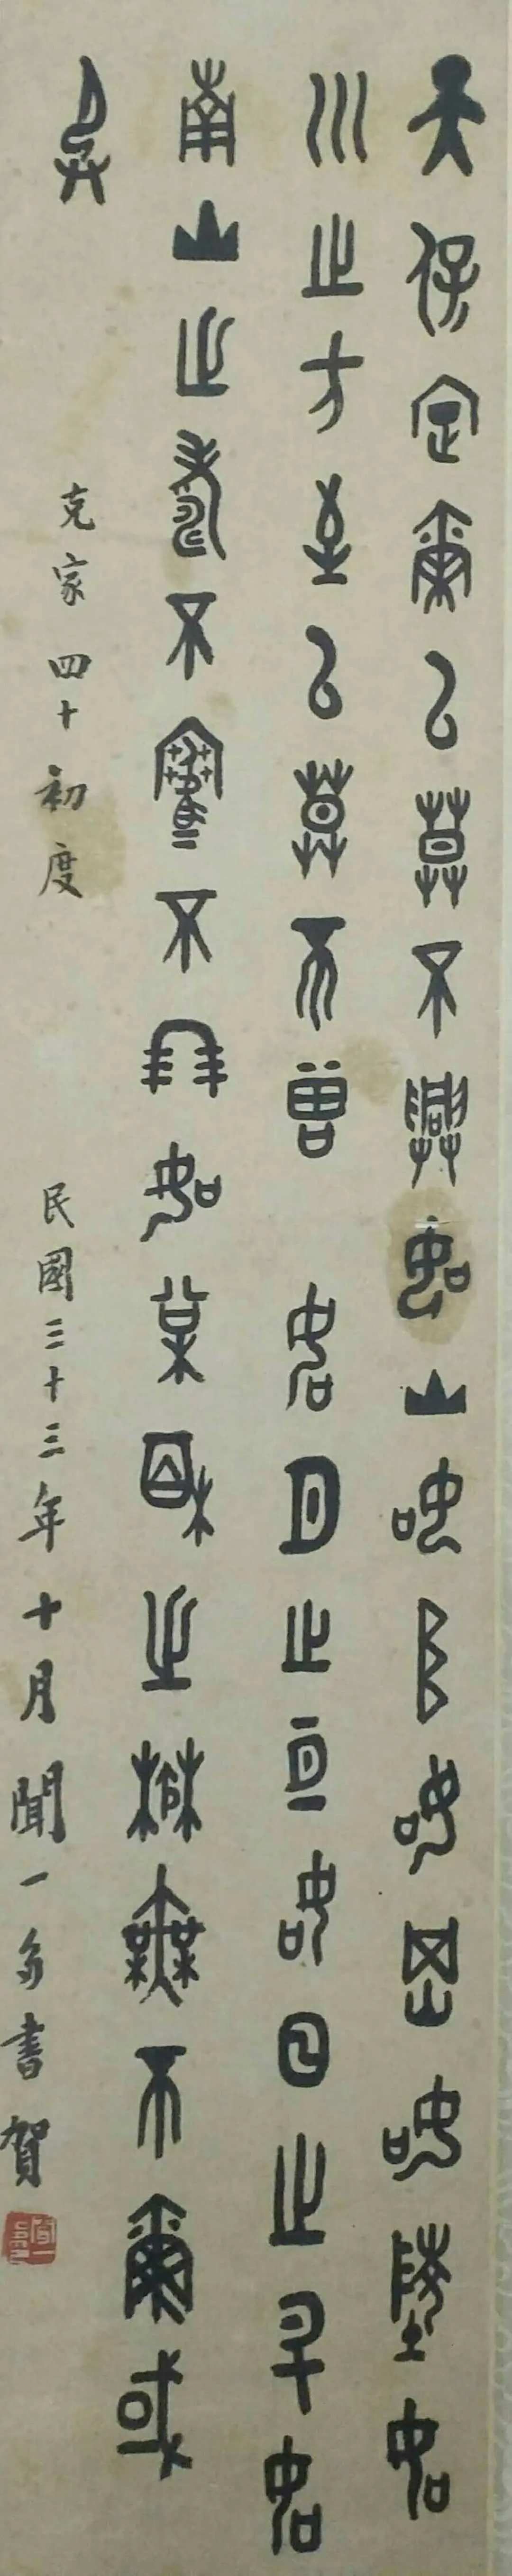 天保定爾以莫不興如山如阜如岡如陵如
川之方至以莫不曾如月之亙如日之升如
南山之壽不騫不朋如松柏之楙無不爾或
承
克家四十初度
民國三十三年十月聞一多書賀